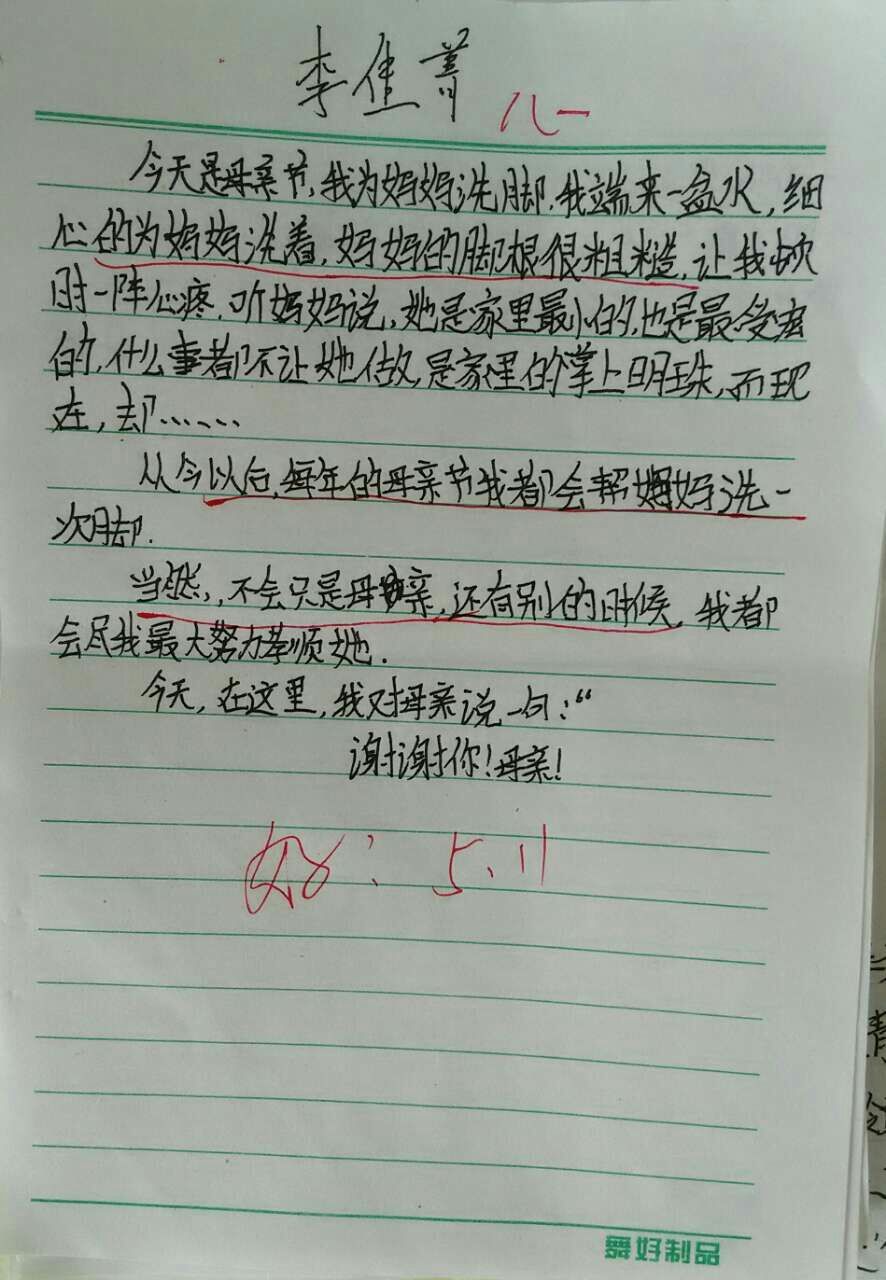 李佳菁
八一
今天是母亲节,我为妈妈洗脚.我端来一盆水,细
心的为妈妈洗着,妈妈的脚根很粗糙,让我顿
时一阵心疼.听妈妈说,她是家里最小的,也是最受宠
的,什么事都不让她做,是家里的掌上明珠,而现
在,却……
从今以后,每年的母亲节我都会帮妈妈洗一
次脚.
当然,不会只是母亲,还有别的时候,我都
会尽我最大努力孝顺她.
今天,在这里,我对母亲说一句:“
谢谢你!母亲!
好! 5.11
爵好制品